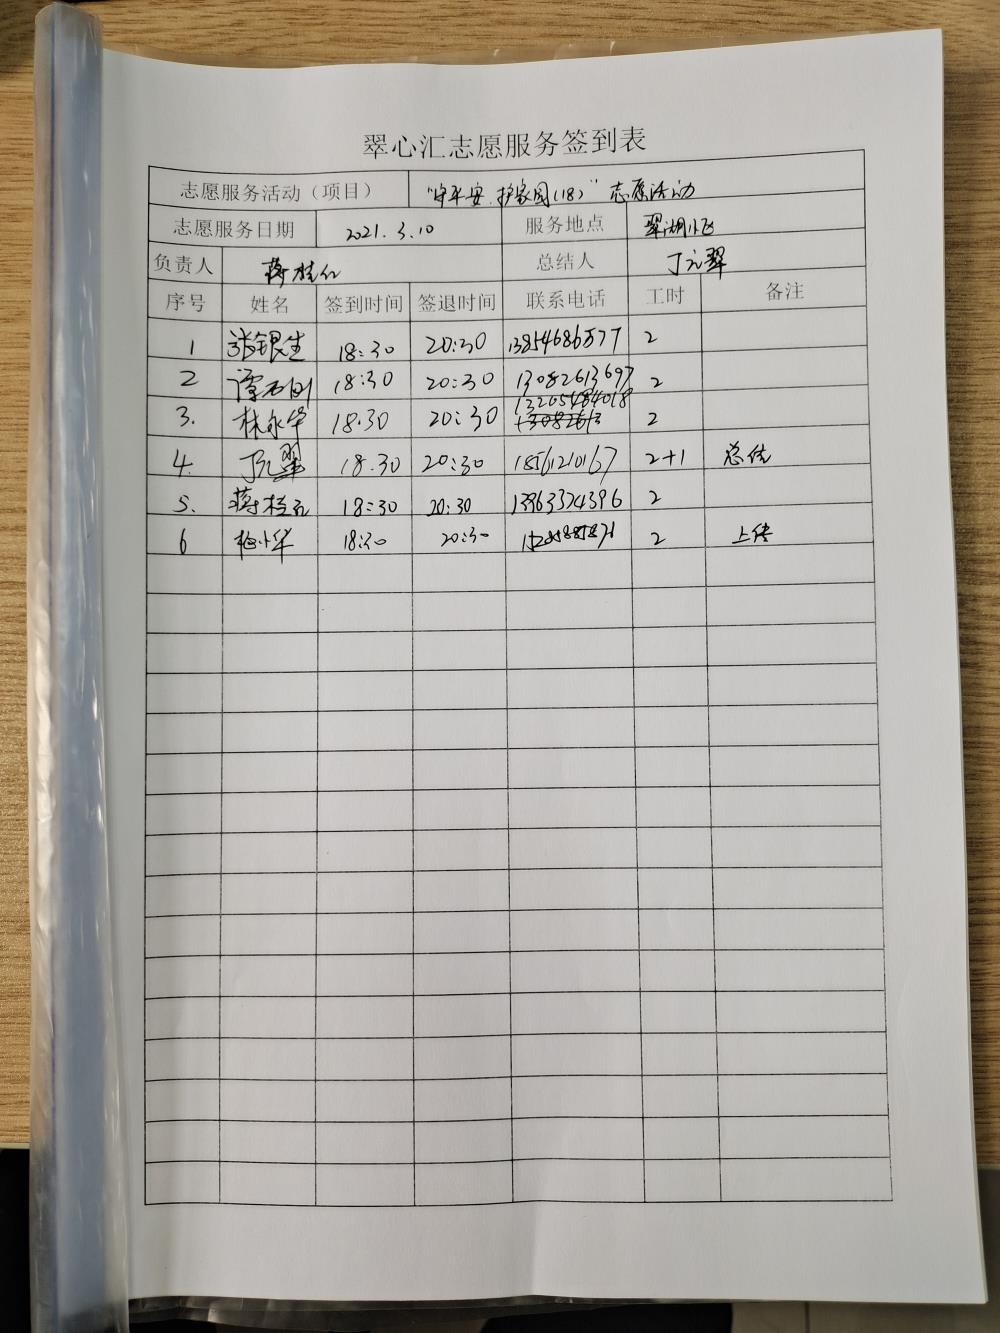 翠心汇志愿服务签到表
志愿服务活动（项目） “守平安 护家园(18)”志愿活动
志愿服务日期 2021.3.10 服务地点 翠湖小区
负责人 蒋桂红 总结人 丁元翠
序号 姓名 签到时间 签退时间 联系电话 工时 备注
1 张银生 18:30 20:30 13854686577 2
2 谭石国 18:30 20:30 13082613697 2
3. 林永华 18:30 20:30 13205484018 2
4. 丁元翠 18:30 20:30 18561210167 2+1 总结
5. 蒋桂红 18:30 20:30 13963374396 2
6 18:30 20:30 2 上传